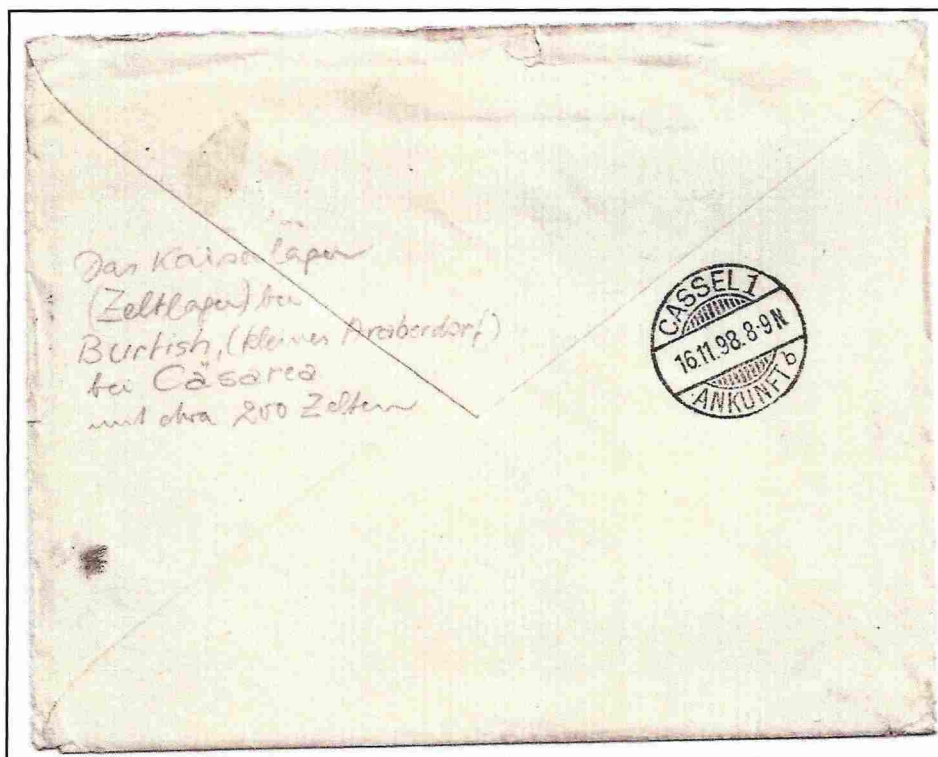 Das Kaiserlager
(Zeltlager) bei
Burtish, (kleines Araberdorf)
bei Cäsarea
mit etwa 200 Zeltern
CASSEL 1
16.11.98.8-9N
ANKUNFT b